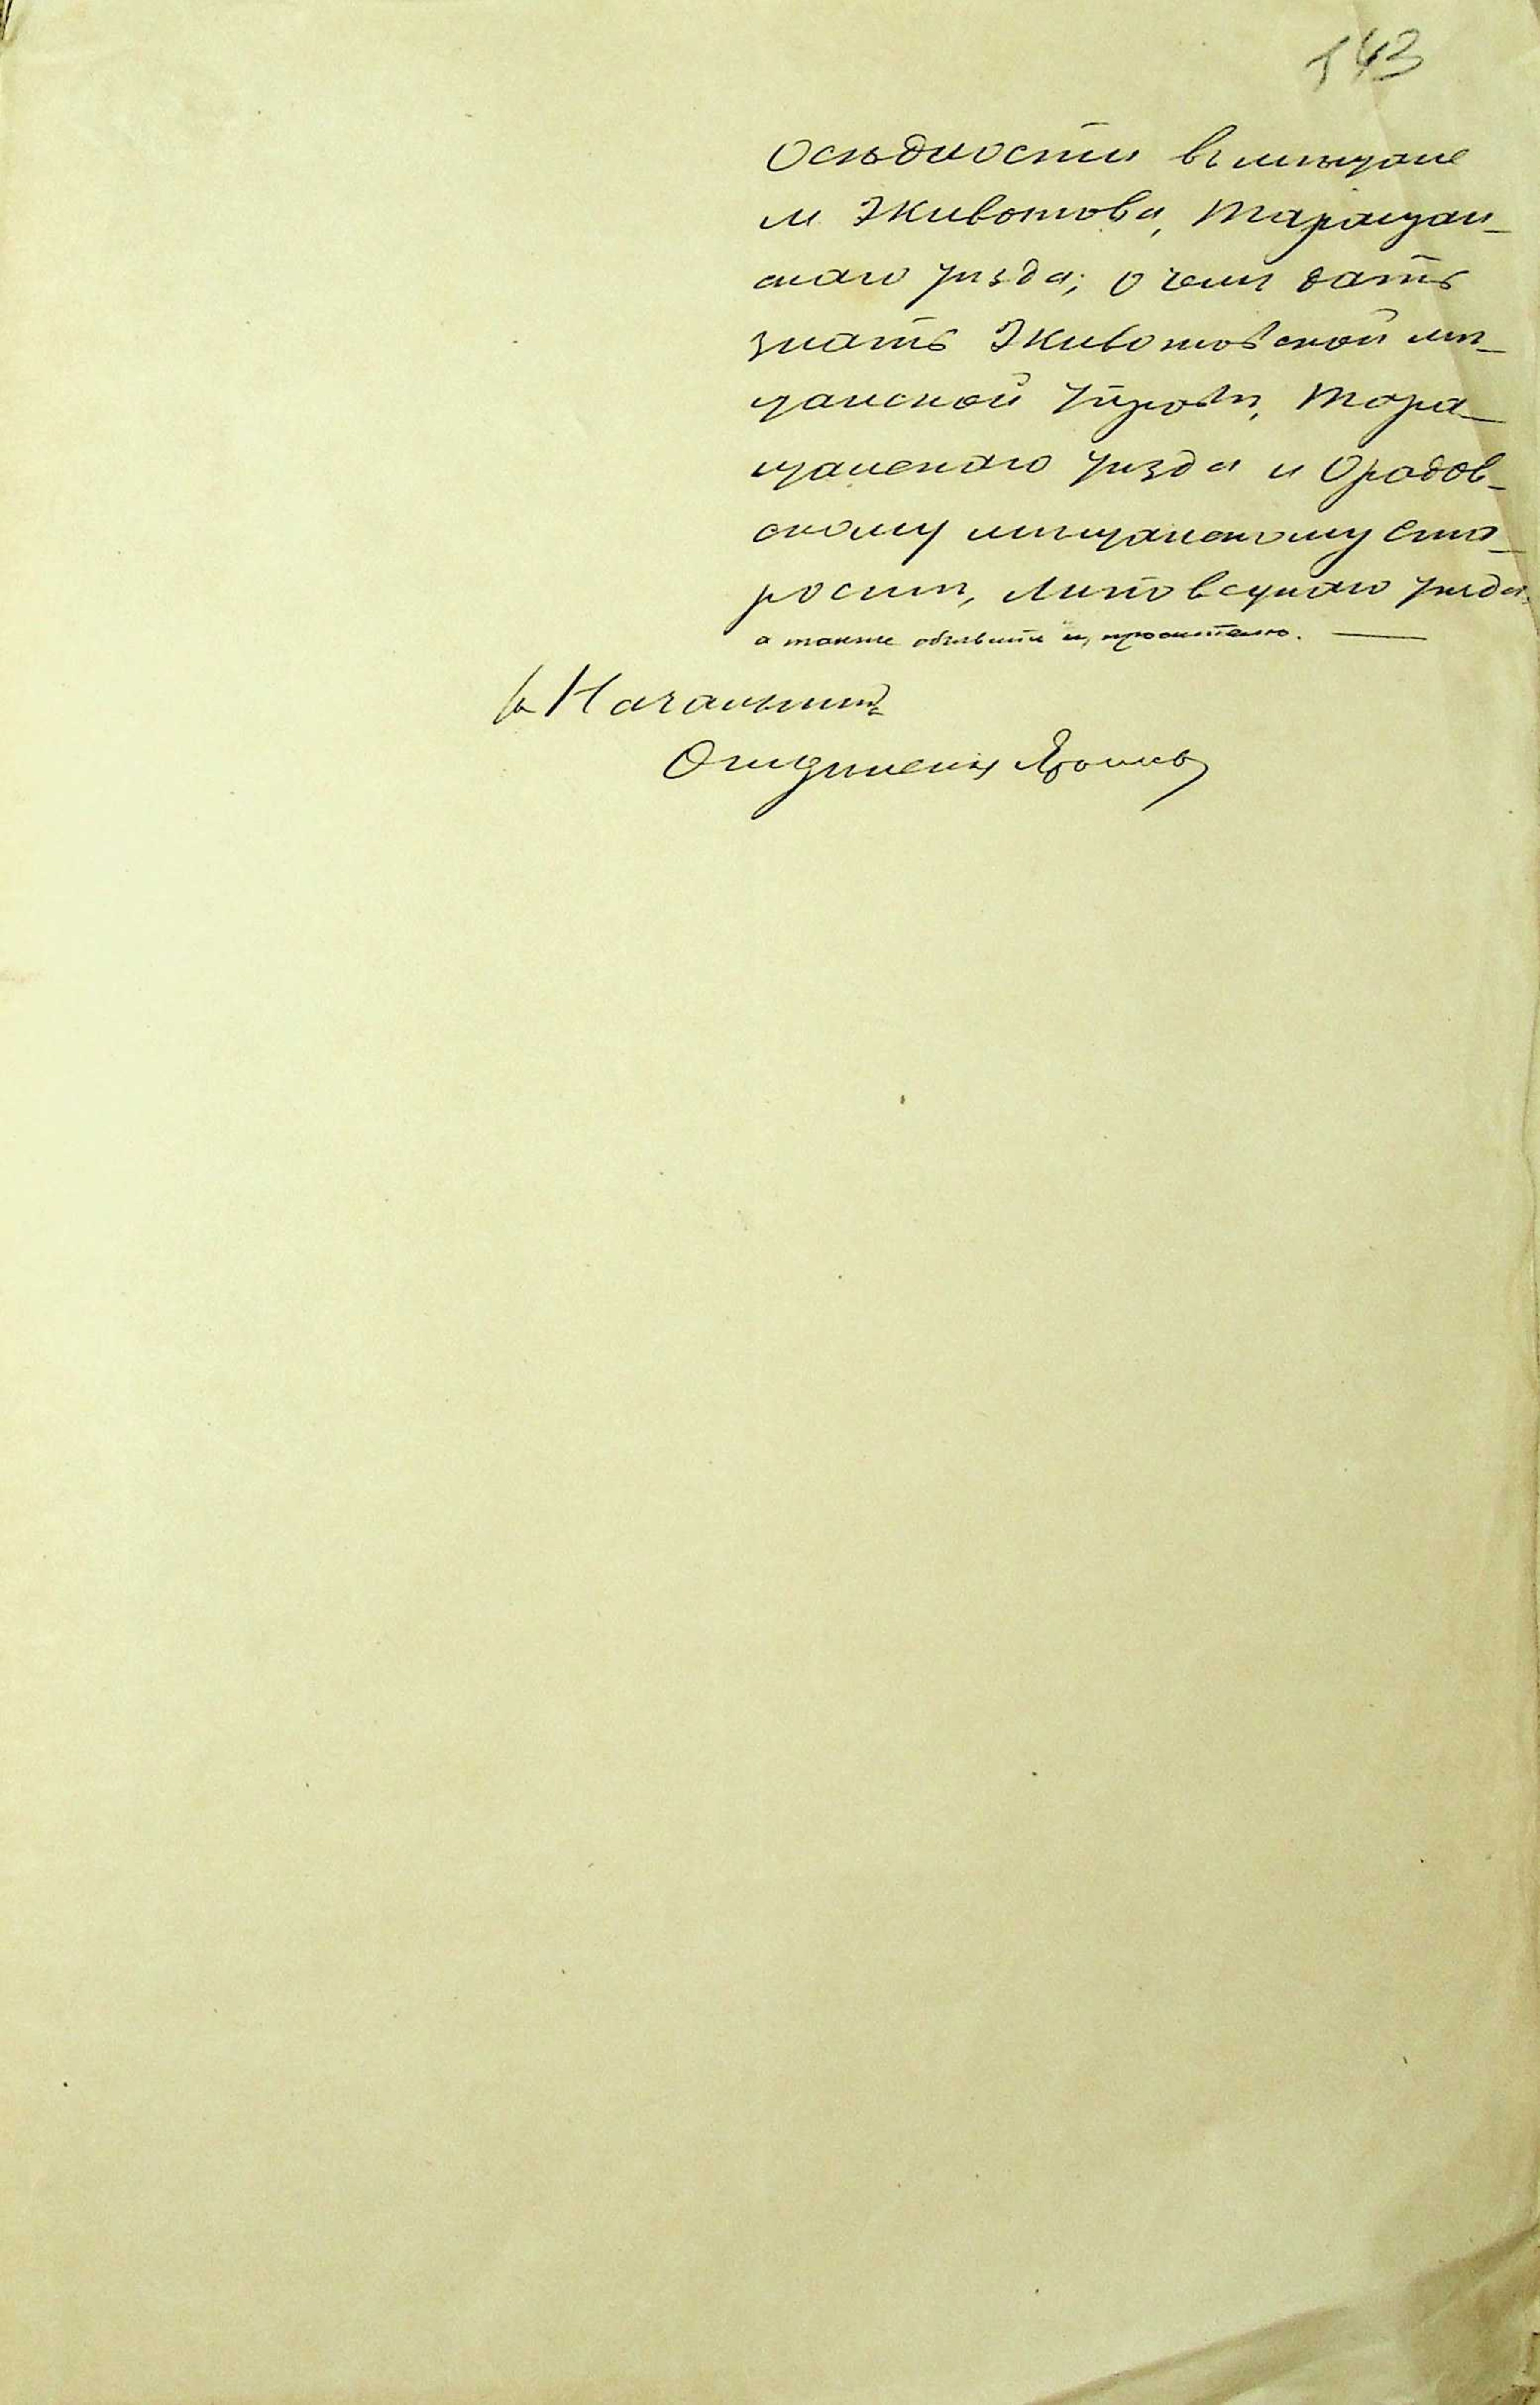 143
Осѣдлости въ мѣщане
м. Животова, Таращан-
скаго уѣзда; о чемъ дать
знать Животовской мѣ-
щанской Управѣ, Тара-
щанскаго уѣзда и Орадов-
скому мѣщанскому Ста-
ростѣ, Липовецкаго уѣзда
а также объявить и просителю.
Начальникъ
Отдѣленія